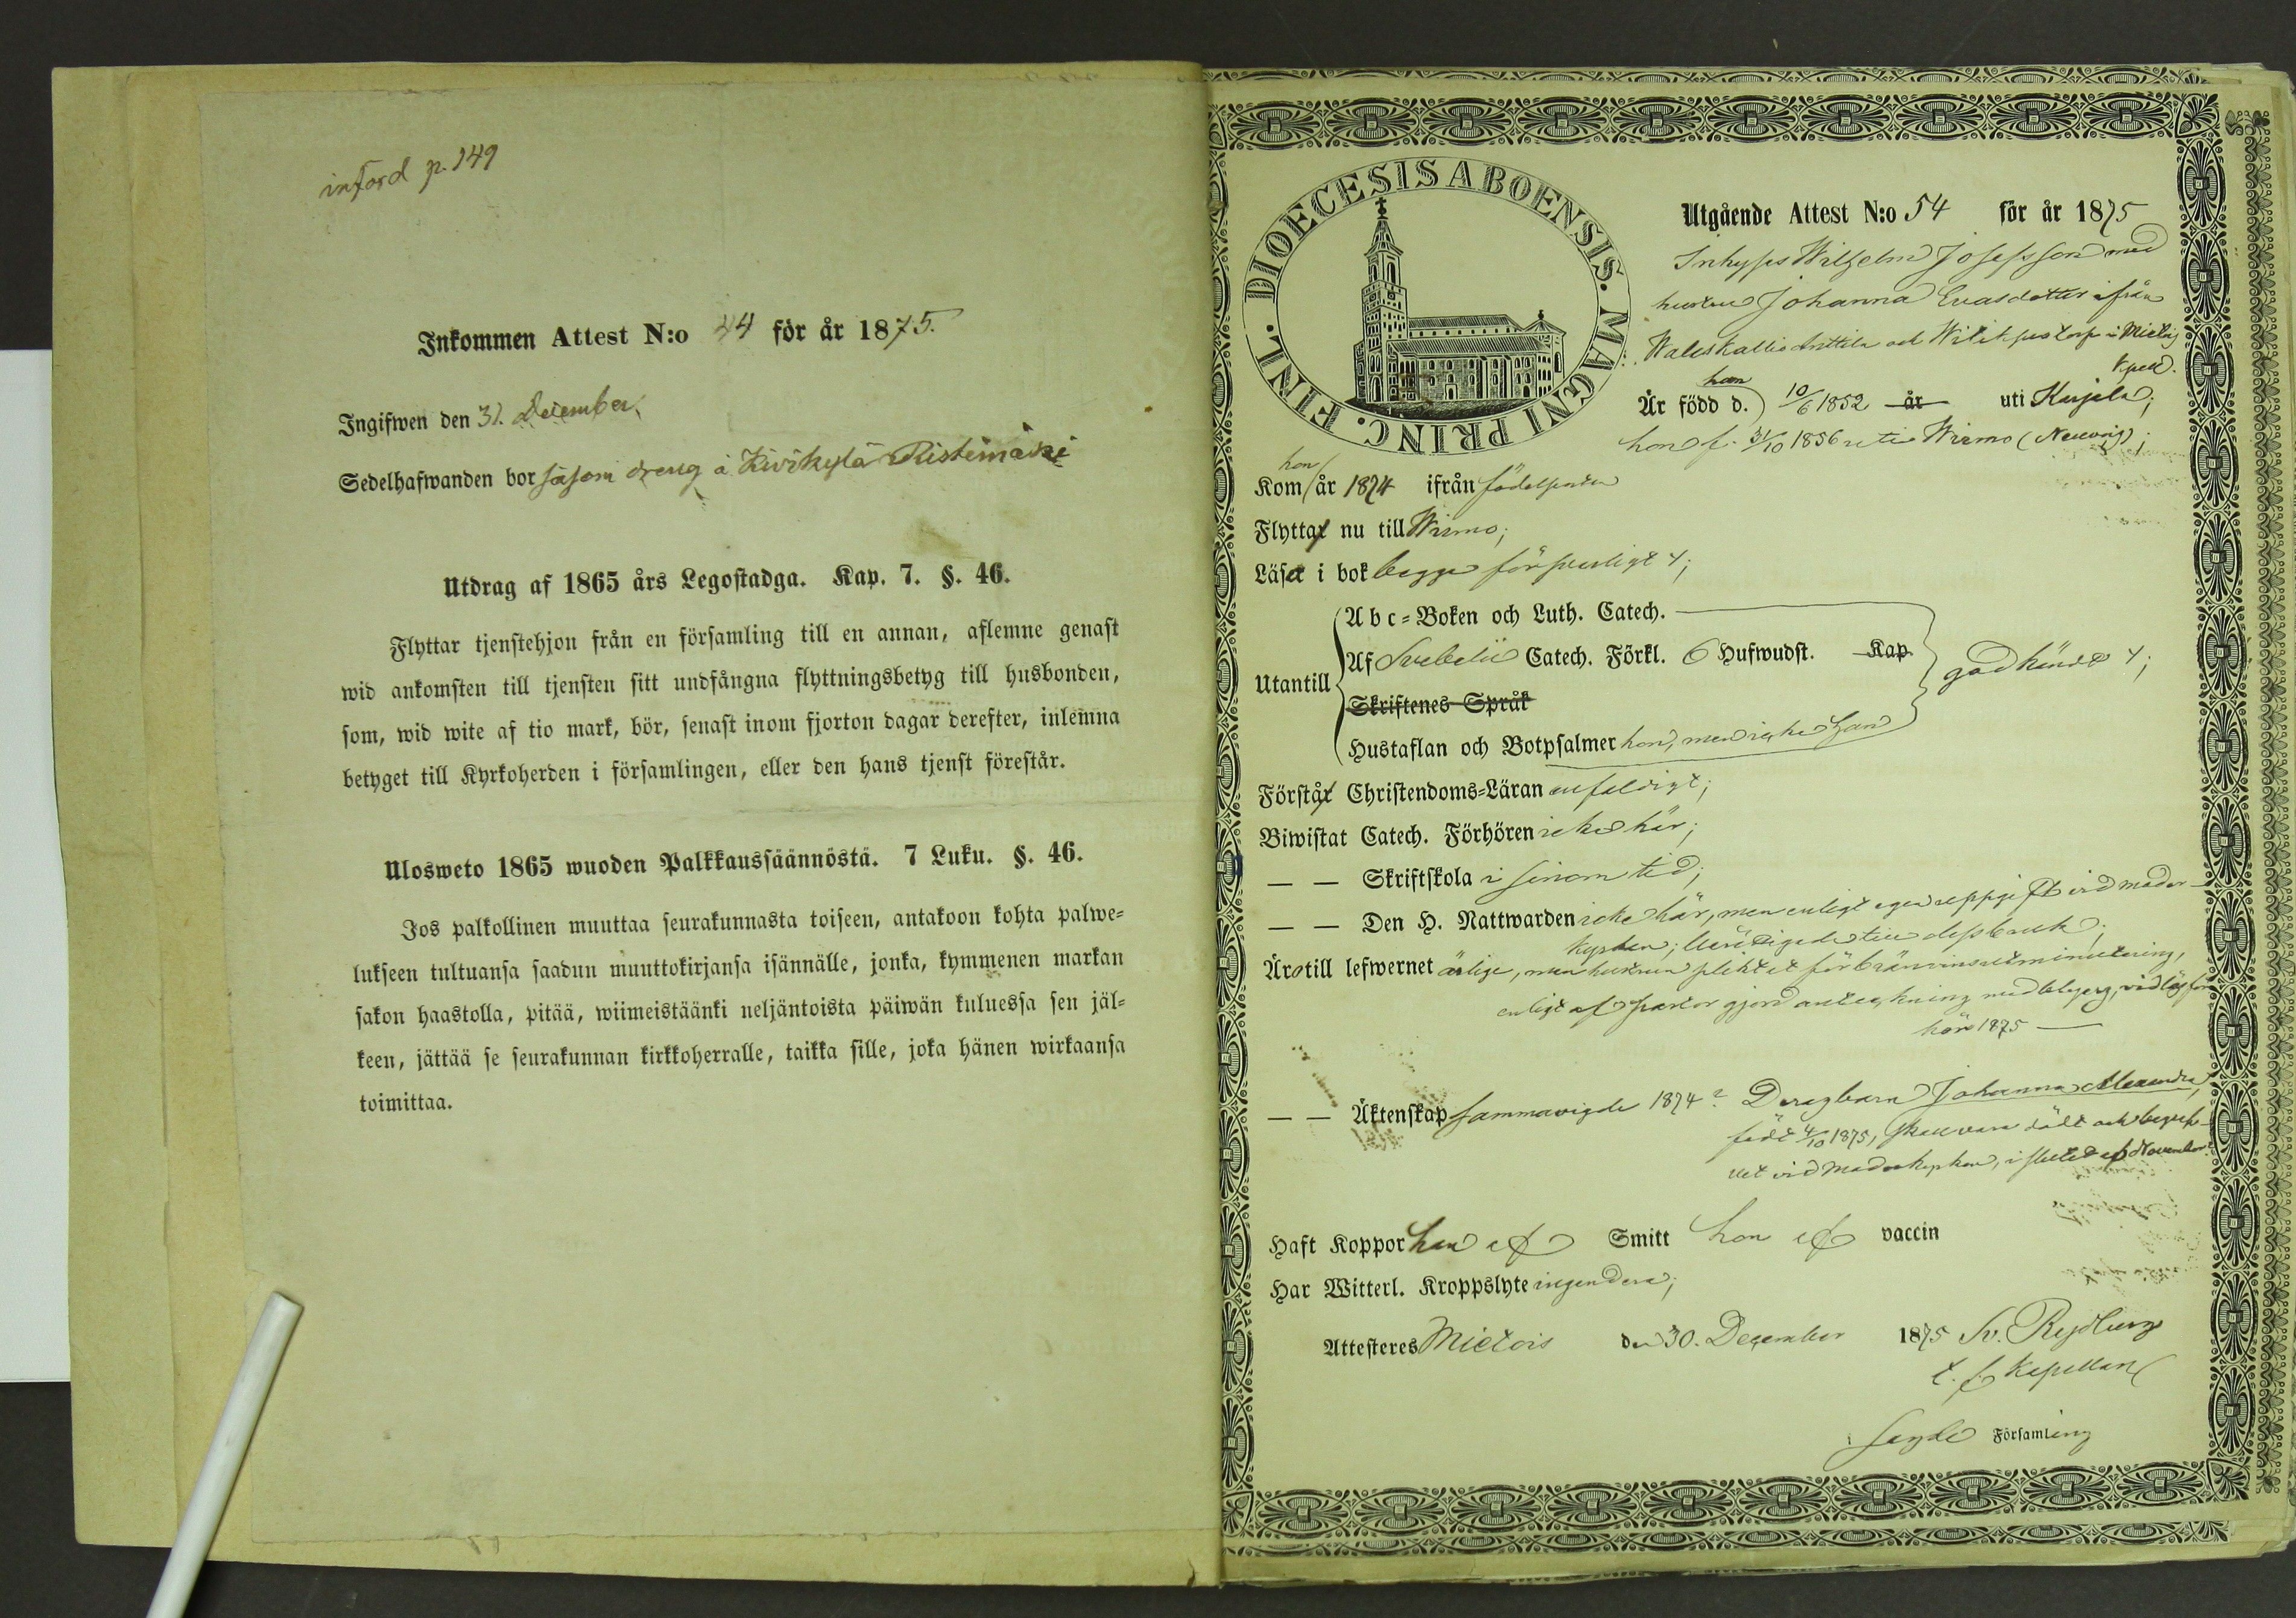 införd p. 149
Inkommen Attest N:o 44 för år 1875.
Ingifwen den 31. December,
Sedelhafwanden bor såsom dreng å Kivikylä Ristimäki
Utdrag af 1865 års Legostadga. Kap. 7. §. 46.
Flyttar tjenstehjon från en församling till en annan, aflemne genast
wid ankomsten till tjensten sitt undfångna flyttningsbetyg till husbonden,
som, wid wite af tio mark, bör, senast inom fjorton dagar derefter, inlemna
betyget till Kyrkoherden i församlingen, eller den hans tjenst förestår.
Ulosweto 1865 wuoden Palkkaussäännöstä. 7 Luku. §. 46.
Jos palkollinen muuttaa seurakunnasta toiseen, antakoon kohta palwe=
lukseen tultuansa saadun muuttokirjansa isännälle, jonka, kymmenen markan
sakon haastolla, pitää, wiimeistäänki neljäntoista päiwän kuluessa sen jäl=
keen, jättää se seurakunnan kirkkoherralle, taikka sille, joka hänen wirkaansa
toimittaa.
DIOECESIS ABOENSIS. MAGNI PRINC. FINL.
Utgående Attest N:o 54 för år 1875
Inhyses Wilhelm Josefsson med
hustru Johanna Evasdotter ifrån
Antila och torp i Mietois
kpell.
han
Är född d. 10/6 1852 år uti Karjala;
hon f. 31/10 1856 uti Wirmo
hon
Kom år 1874 ifrån födelseorten
Flyttar nu till Wirmo;
Läsa i bok begge försvarligt;
Utantill
A b c=Boken och Luth. Catech.
Af Svebelii Catech. Förkl. 6 Hufwudst. Kap
Skriftenes Språk
Hustaflan och Botpsalmer hon, men icke han
godkändt;
Förstår Christendoms=Läran enfaldigt;
Biwistat Catech. Förhören icke här;
— — Skriftskola i sinom tid;
— — Den H. Nattwarden icke här, men enligt egen uppgift vid moder-
kyrkan; berättigade till dess bruk;
Äro till lefwernet ärlige, men hustrun pliktat för bränvinsutminutering,
enligt af pastor gjord anteckning vid
hör 1875 —
— — Äktenskap sammanvigde 1874? Deras barn Johanna Alexandra,
födt 4/10 1875, skall vara dödt och begraf-
vet vid moderkyrkan, i slutet af November.
Haft Koppor han ej Smitt hon ej vaccin
Har Witterl. Kroppslyte ingendera;
Attesteres Mietois den 30. December 1875 Sv. Rydberg
t. f. Kapellan
i sagde Församling